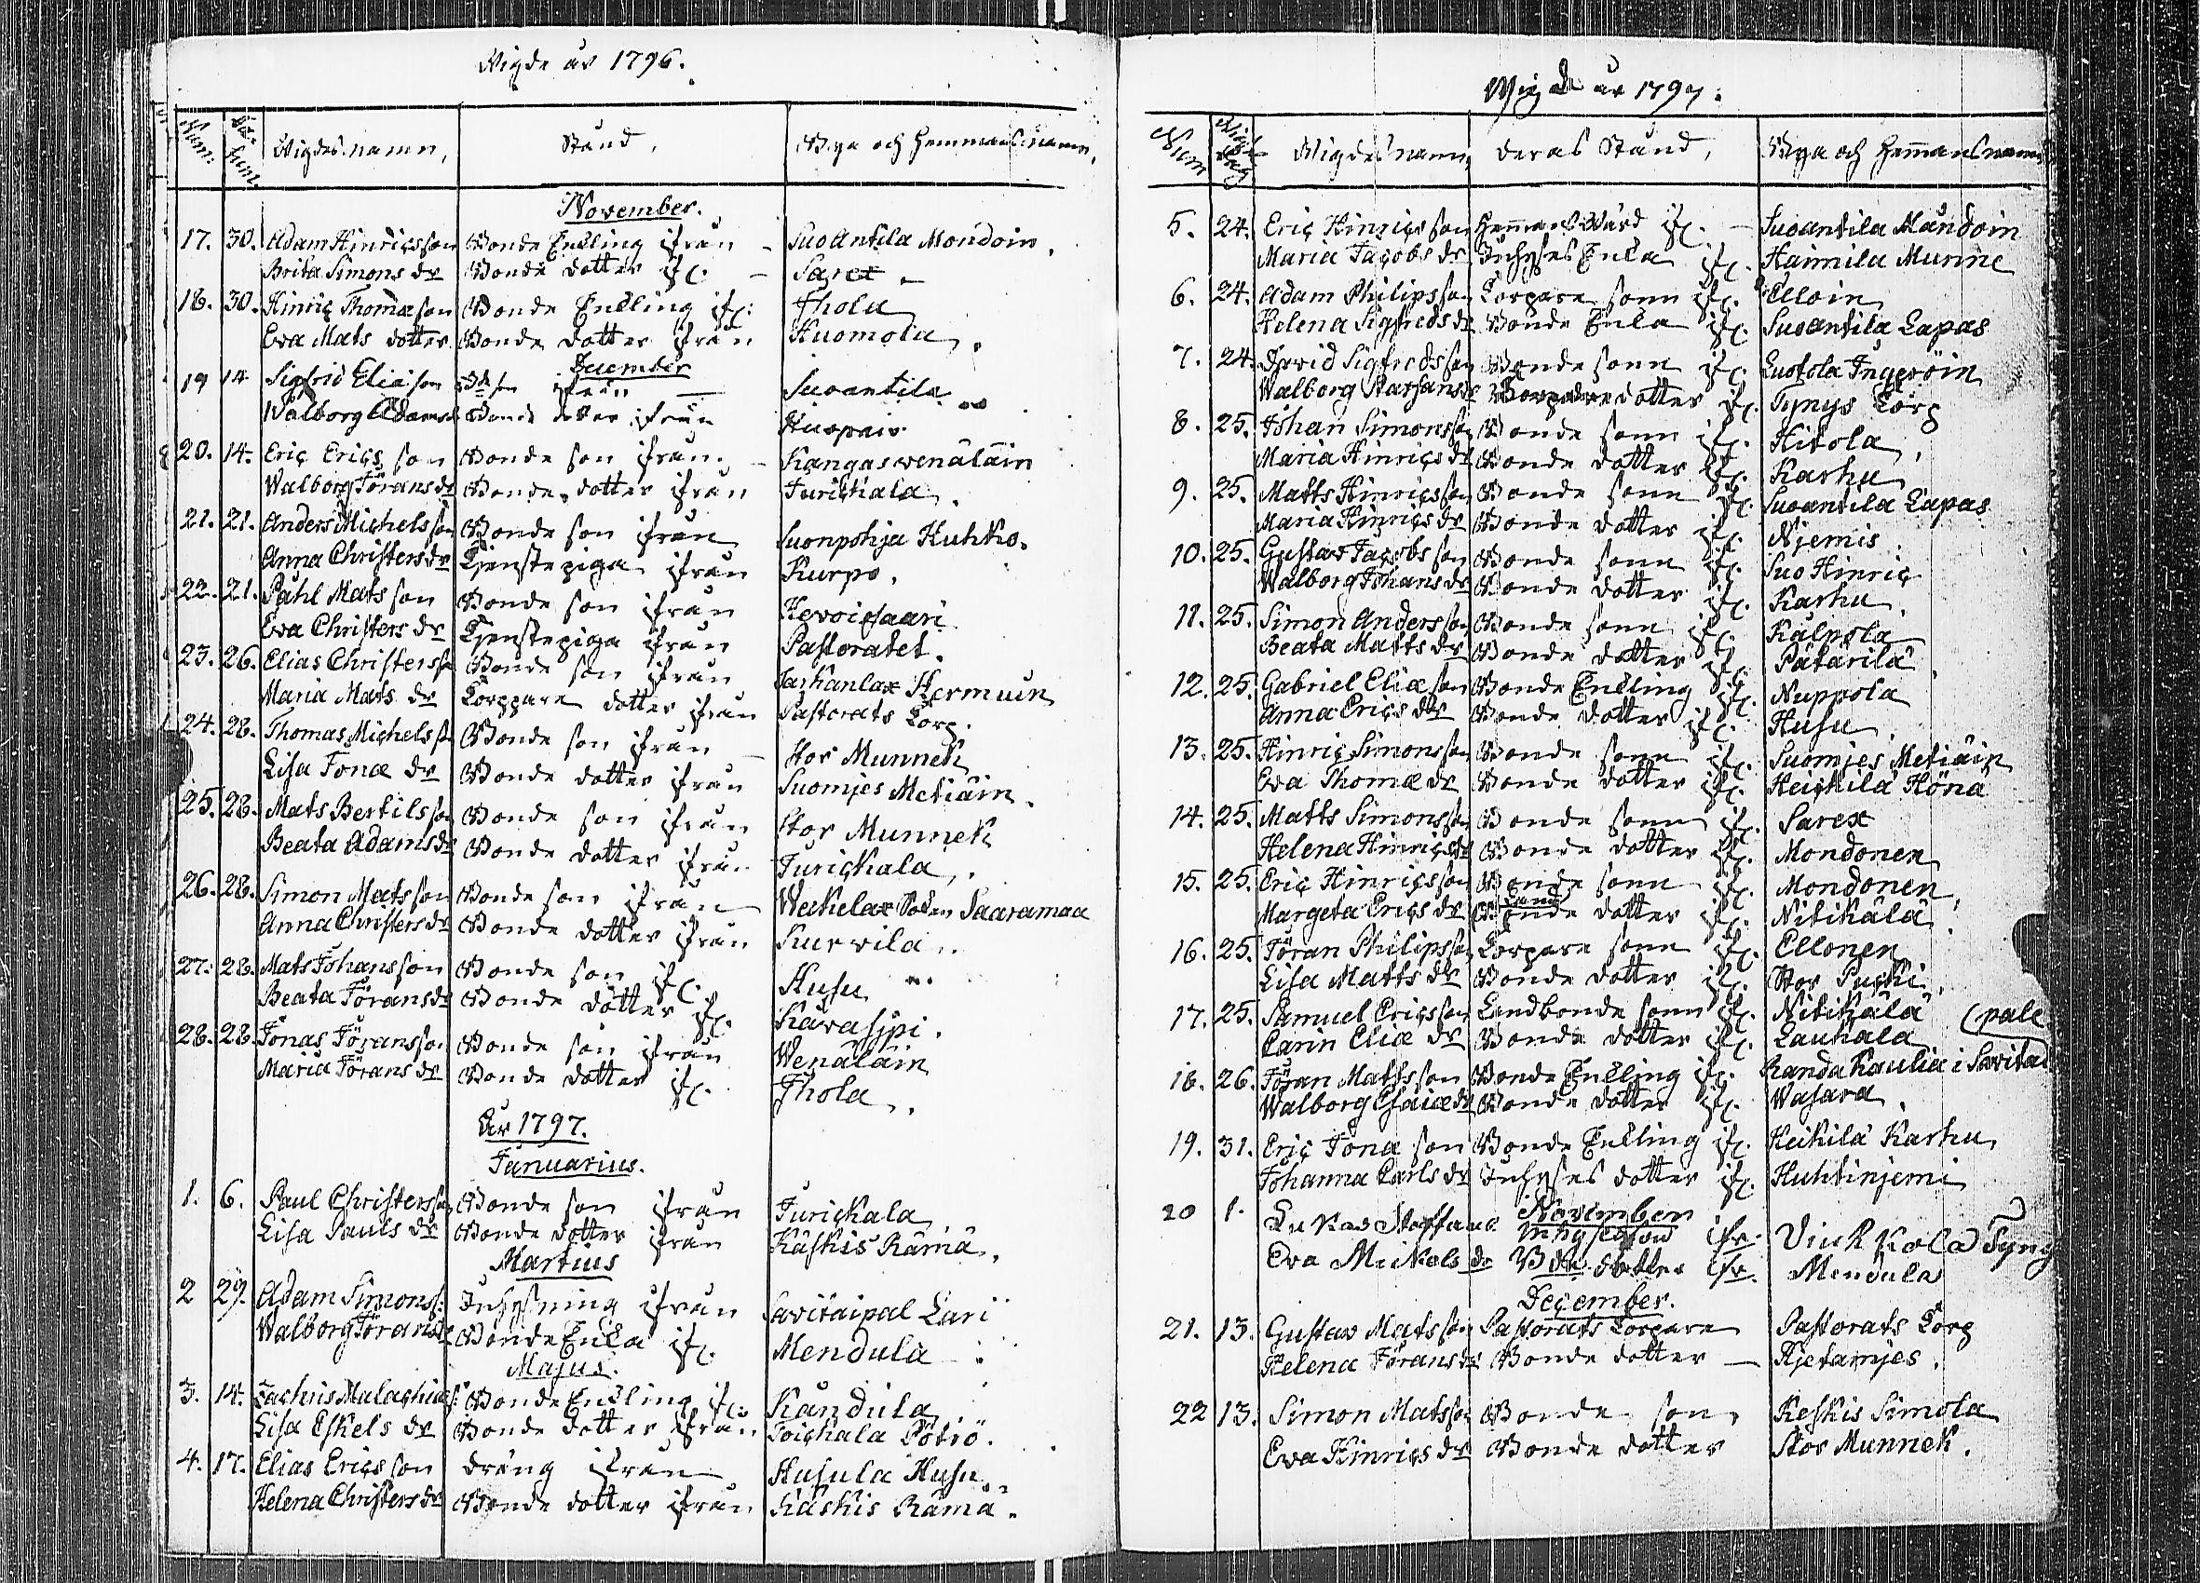 Wigde år 1796.
Num: Datum. Wigdes namn, Stånd, Bya och Hemmans namn,
November.
17. 30. Adam Hinricsson Bonde Enkling ifrån - Suoantila Mondoin.
Brita Simons dr Bonde dotter if. - Sarex -
18. 30. Hinric Thomæson Bonde Enkling if: Ihola
Eva Mats dotter Bonde dotter ifrån Huomola.
December
19 14 Sigfrid Eliæson Bd. son ifrån - Suoantila
Walborg Adamsd Bonde dotter ifrån
20. 14. Eric Erics son Bonde son ifrån. - Kangaswenäläin
Walborg Jöransdr Bonde dotter ifrån Jurickala.
21. 21. Anders Michelsson Bonde son ifrån Suonpohja Kuhko.
Anna Christersdr Tjenstepiga ifrån Kurpo.
22. 21. Påhl Matsson Bonde son ifrån Hevoisaari
Eva Christers dr Tjenstepiga ifrån Pastoratet.
23. 26. Elias Christersso Bonde son ifrån Sarkanlax Hermuin
Maria Mats dr Torppare dotter ifrån Pastorats Torp.
24. 28. Thomas Michels so Bonde son ifrån - Stor Munnek
Lisa Jonæ dr Bonde dotter ifrån Suomjes Metiäin.
25. 28. Mats Bertilsson Bonde son ifrån Stor Munnek
Beata Adamsdr Bonde dotter ifrån Jurickala.
26. 28. Simon Matsson Bonde son ifrån Weckelax Soken Saaramaa
Anna Christersdr Bonde dotter ifrån Kurwila.
27. 28. Mats Johansson Bonde son if. Husu
Beata Jöransdr Bonde dotter if. Kävasjpi.
28. 28. Jonas Jöransson Bonde son ifrån Wenäläin
Maria Jörans dr Bonde dotter if. Ihola.
År 1797.
Januarius.
1. 6. Paul Christersson Bonde son ifrån Jurickala
Lisa Pauls dr Bonde dotter ifrån Käskis Rämä.
Martius
2 29. Adam Simonss: Inhysning ifrån Savitaipal Lari
Walborg Jöransdr Bonde Enka if. Mendula
Majus.
3. 14. Zachris Malachiæs: Bonde Enkling if. Kändula
Lisa Eskels dr Bonde dotter ifrån Toichala Pötiö.
4. 17. Elias Ericsson dräng ifrån Husula Husu
Helena Christersdr Bonde dotter ifrån Käskis Rämä.
Wigde år 1797.
Num Wigde dag Wigdes namn, deras Stånd, Bya och Hemmans namn
5. 24. Eric Hinricsson Hemmans Wärd if. - Suoantila Mändoin
Maria Jacobs dr Inhyses Enka if. Haimila Munne
6. 24. Adam Philipsson Torpare sonn if. Elloin
Helena Sigfredsdr Bonde Enka if. Suoantila Lapas
7. 24. David Sigfredsson Bonde sonn if. Luotola Ingeröin
Walborg dotter if. Tynys Torp
8. 25. Johan Simonsson Bonde sonn if. Hitola,
Maria Hinrics dr Bonde dotter if. Karhu
9. 25. Matts Hinricsson Bonde sonn if. Suoantila Lapas
Maria Hinrics dr Bonde dotter if. Njemis
10. 25. Gustav Jacobsson Bonde sonn if. Suo Hinric
Walborg Johansdr Bonde dotter if. Karhu
11. 25. Simon Andersson Bonde sonn if. Kälpola
Beata Matts dr Bonde dotter if. Pätärilä
12. 25. Gabriel Eliæson Bonde Enkling if. Nuppola
Anna Erics dr Bonde dotter if. Husu
13. 25. Hinric Simonsson Bonde sonn if. Suomjes Metiäin
Eva Thomæ dr Bonde dotter if. Heickilä Hönä
14. 25. Matts Simonsson Bonde sonn if. Sarex
Helena Hinricsdr Bonde dotter if. Mondonen
15. 25. Eric Hinricsson Bonde sonn if. Mondonen,
Margeta Erics dr Land Bonde dotter if. Nitikälä.
16. 25. Jöran Philipsson Torpare sonn if. Ellonen
Lisa Matts dr Bonde dotter if. Stor Pucki,
17. 25. Samuel Ericsson Landbonde sonn if. Nitikälä (pale
Carin Eliæ dr Bonde dotter if. Laukala
18. 26. Jöran Mattsson Bonde Enkling if. Randa Kaulia i Savitai
Walborg Esaiædr Bonde dotter if. Wasara.
19. 31. Eric Jonæ son Bonde Enkling if. Heikilä Karhu
Johanna Carls dr Inhyses dotter if. Huhtinjemi
November
20 1. Lukas Staffans Inhysesson ifr.
Eva Mickels dr Bde. dotter ifr. Mendula
December.
21. 13. Gustav Matsson Pastorats Torpare Pastorats Torp
Helena Jöransdr Bonde dotter - Kjetamjes.
22 13. Simon Matsson Bonde son Keskis Simola
Eva Hinrics dr Bonde dotter Stor Munnek.